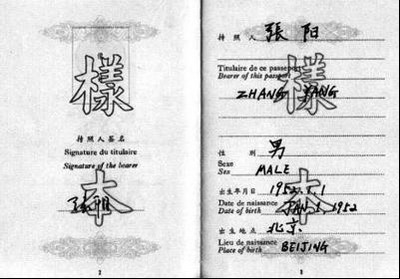 樣
持照人签名
Signature du titulaire
Signature of the bearer
張阳
本
2
持照人 張阳
Titulaire de ce passeport
Bearer of this passport
ZHANG YANG
樣
性别 男
Sexe
Sex MALE
本
出生年月日 1952.1.1
Date de naissance
Date of birth JAN. 1. 1952
出生地点 北京
Lieu de naissance
Place of birth BEIJING
3